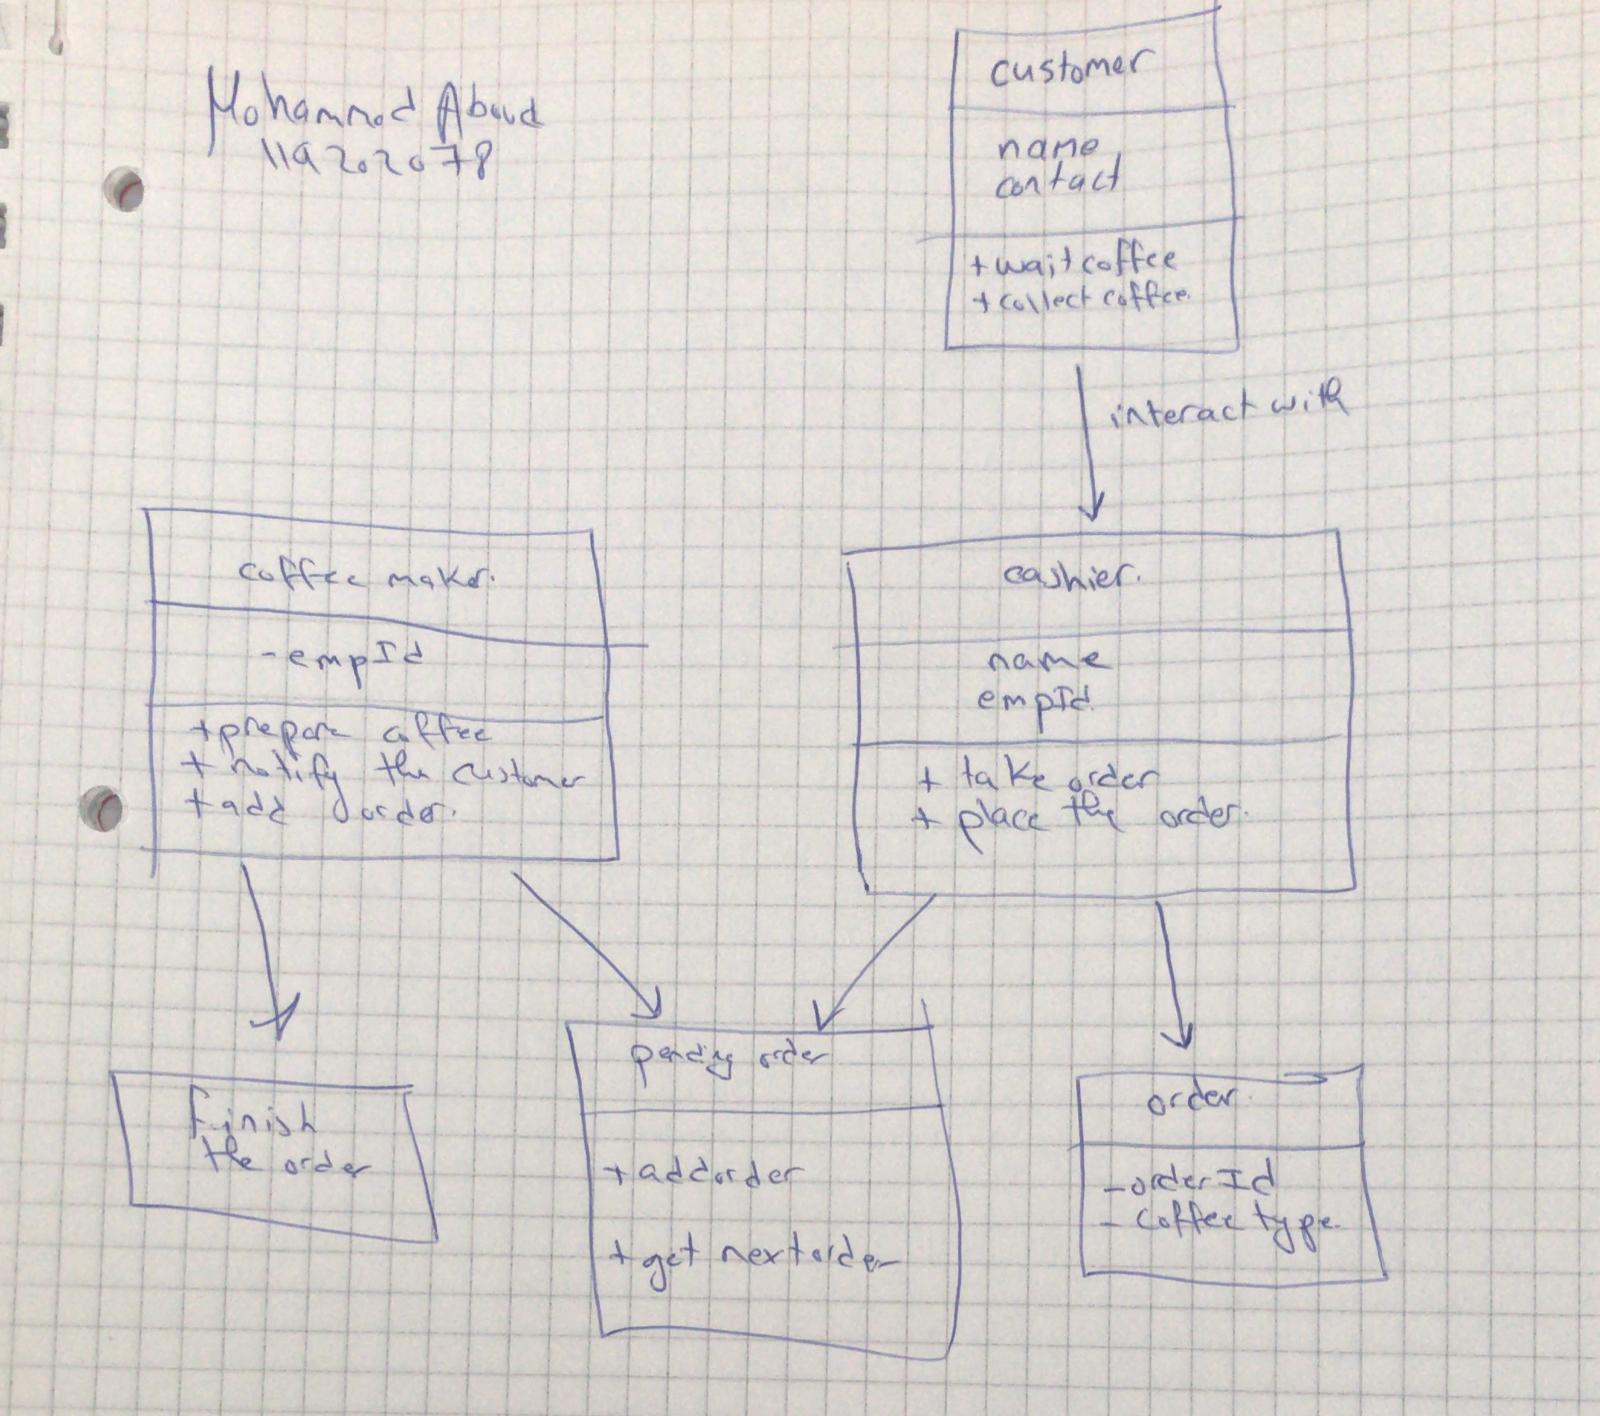 Mohammad Aboud
119202078
customer
name
contact
+ wait coffee
+ collect coffee
interact with
coffee maker
- empId
+ prepare coffee
+ notify the customer
+ add order
cashier
name
empId
+ take order
+ place the order
finish
the order
pending order
+ addorder
+ get next order
order
- orderId
- coffee type